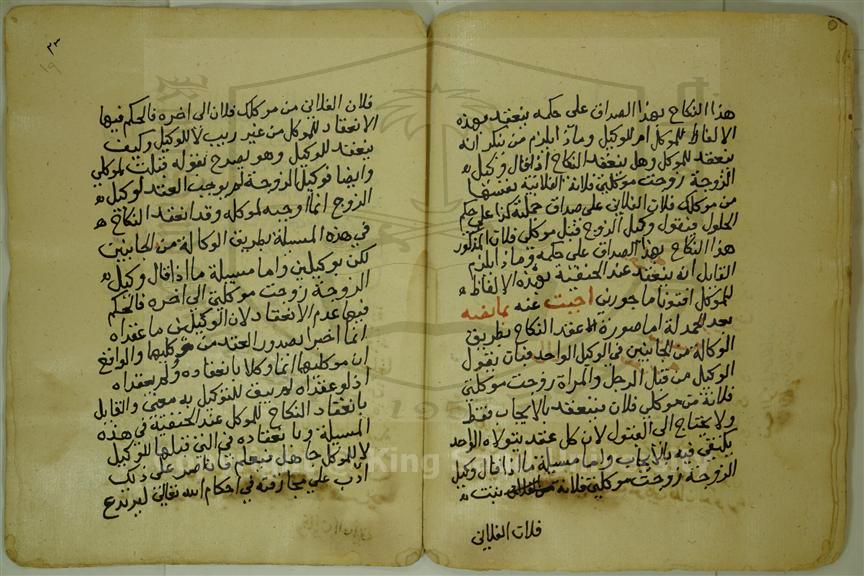 هذا النكاح بهذا الصداق على حكمه ينعقد بهذه
الالفاظ للموكل ام للوكيل وماذا يلزم من ينكر انه
ينعقد للموكل وهل ينعقد النكاح اذا قال وكيل
الزوجة زوجت موكلتي فلانة الفلانية بنفسها
من موكلك فلان الفلاني على صداق جملته كذا على حكم
الحلول فيقول وكيل الزوج قبل موكلي فلان المذكور
هذا النكاح بهذا الصداق على حكمه وماذا يلزم
القايل انه ينعقد عند الحنفية بهذه الالفاظ
للموكل افتونا ماجورين اجبت عنه بما نصه
بعد الحمدلة اما صورة عقد النكاح بطريق
الوكالة من الجانبين في الوكيل الواحد فبان يقول
الوكيل من قبل الرجل والمراة زوجت موكلتي
فلانة من موكلي فلان فينعقد بالايجاب فقط
ولا يحتاج الى القبول لان كل عقد يتولاه الواحد
يكتفى فيه بالايجاب واما مسيلة ما اذا قال وكيل
الزوجة زوجت موكلتي فلانة بنت
فلان الفلاني
٣٣
١٩
فلان الفلاني من موكلك فلان الى اخره فالحكم فيها
الانعقاد للموكل من غير ريب لا للوكيل وكيف
ينعقد للوكيل وهو يصرح بقوله قبلت لموكلي
وايضا فوكيل الزوجة لم يوجب العقد لوكيل
الزوج انما اوجبه لموكله وقد انعقد النكاح
في هذه المسيلة بطريق الوكالة من الجانبين
لكن بوكيلين واما مسيلة ما اذا قال وكيل
الزوجة زوجت موكلتي الى اخره فالحكم
فيها عدم الانعقاد لان الوكيلين ما عقداه
انما اخبرا بصدور العقد من موكليهما والواقع
ان موكليهما انما وكلا بانعقاده ولم يعقداه
اذ لو عقداه لم يبق للتوكيل به معنى والقايل
بانعقاد النكاح للموكل عند الحنفية في هذه
المسيلة وبانعقاده في التي قبلها للوكيل
لا للموكل جاهل فيعلم فان اصر على ذلك
ادب على مجازفته في احكام الله تعالى ليرتدع
King Saud